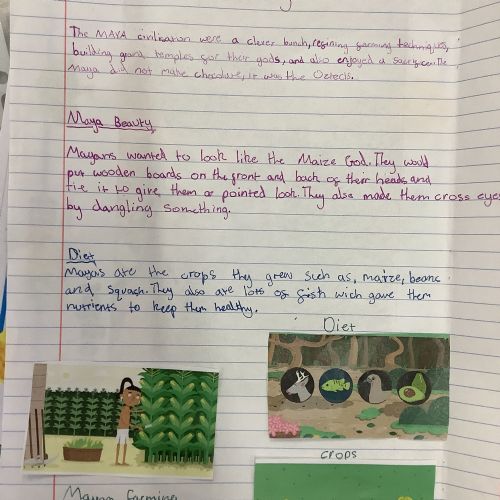 The MAYA civilisation were a clever bunch, regining garming techniques,
building grand temples for their gods, and also enjoyed a sacrifice. The
Maya did not make chocolate, it was the Oztecs.
Maya Beauty
Mayans wanted to look like the Maize God. They would
put wooden boards on the front and back of their heads and
tie it to give them a pointed look. They also made them cross eyes
by dangling something.
Diet
Mayas ate the crops thy grew such as, maize, beans
and squash. They also ate lots of fish wich gave them
nutrients to keep them healthy.
Diet
crops
Mayan farming